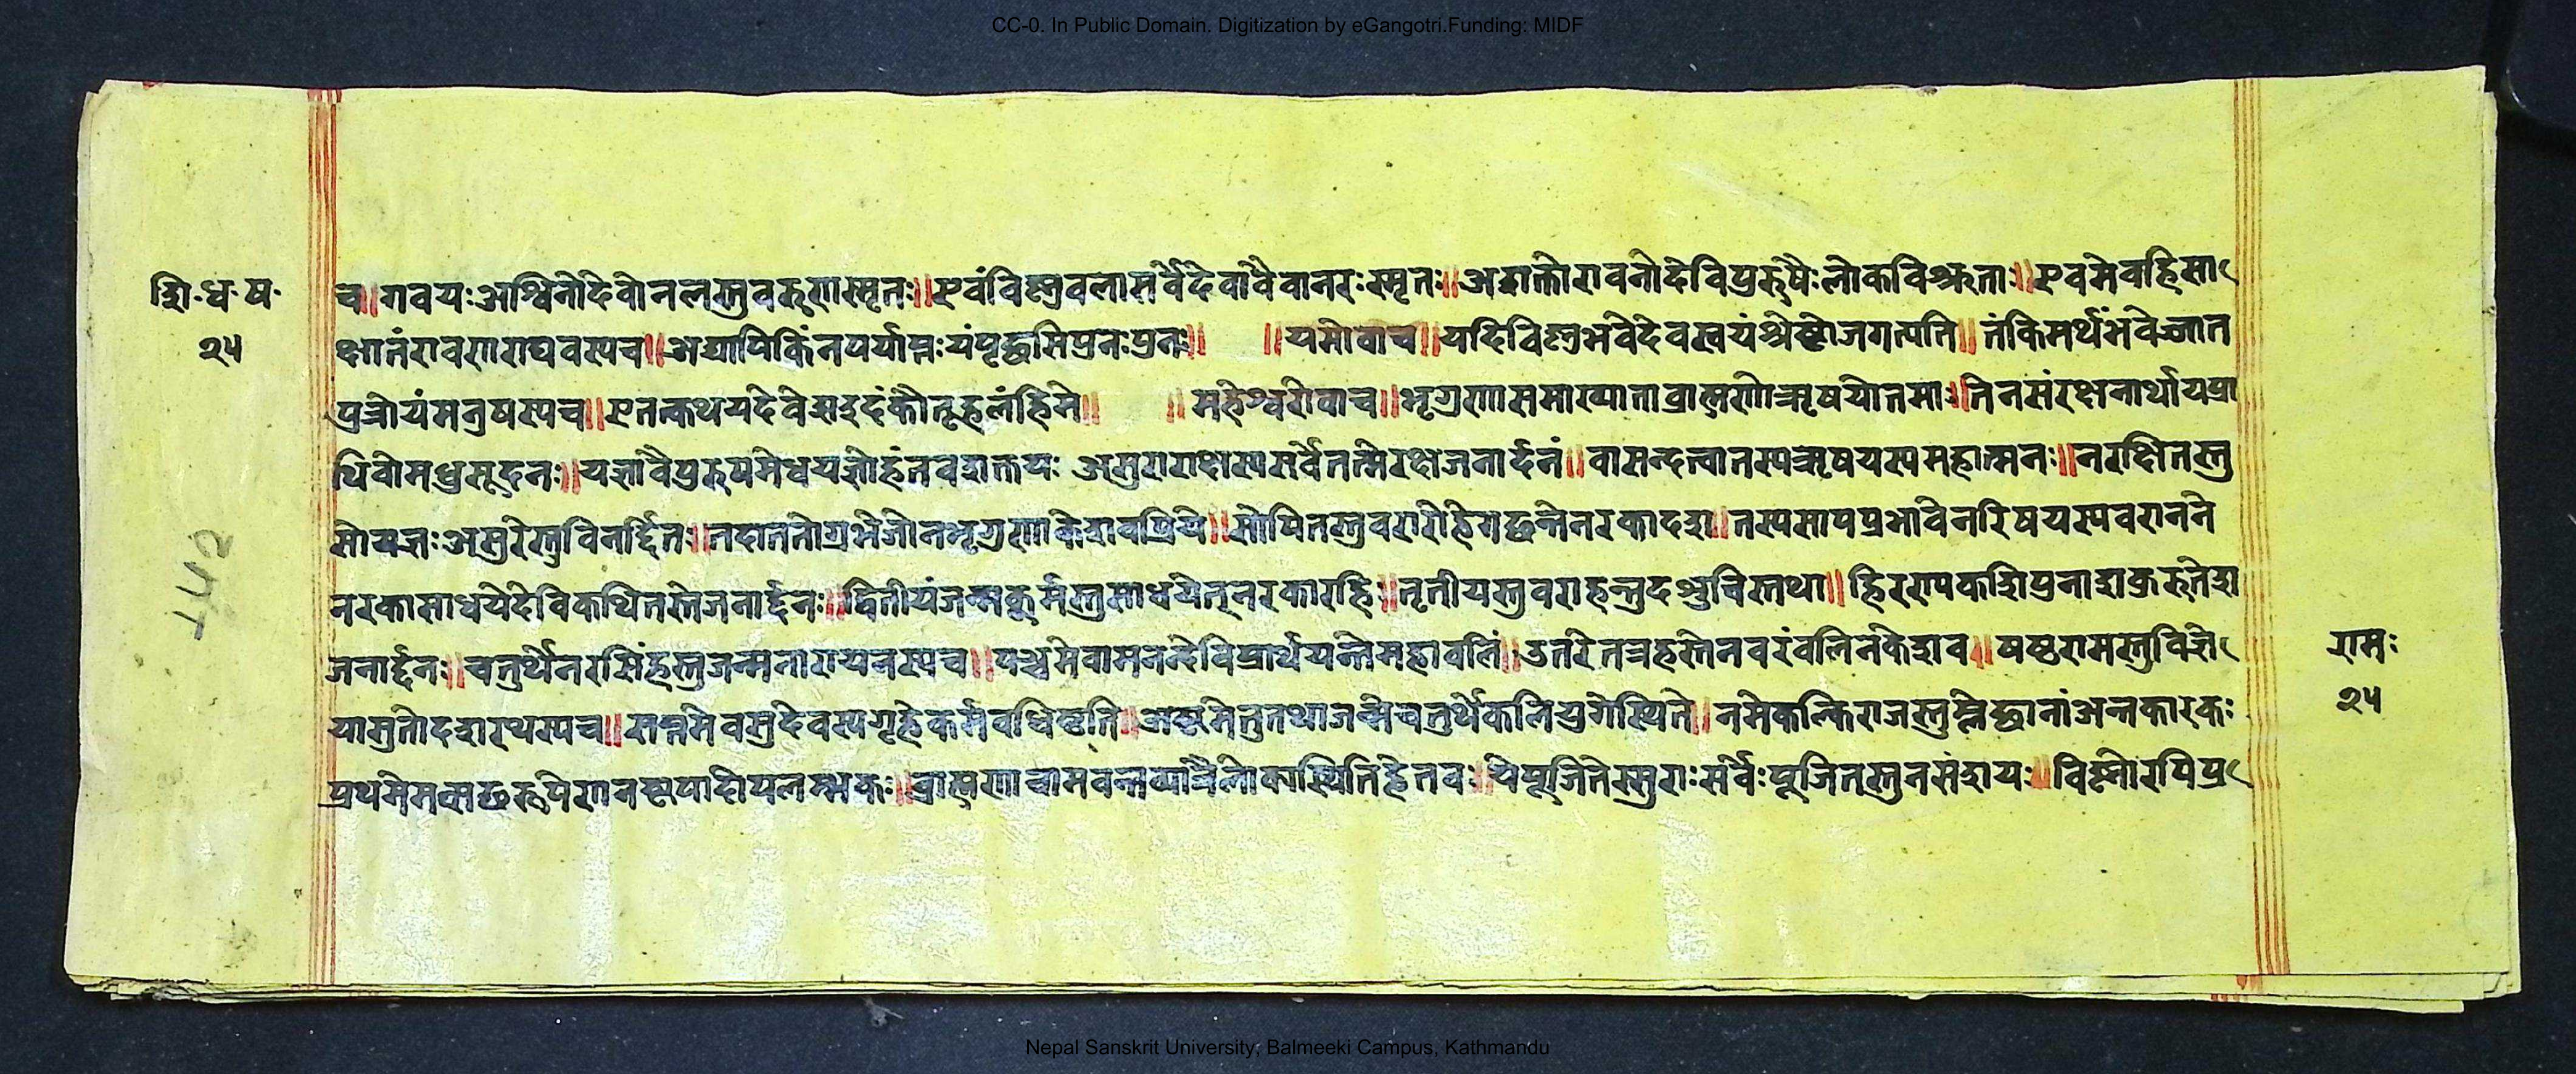 CC-0. In Public Domain. Digitization by eGangotri.Funding: MIDF
शि·ध·ष·
२५
च॥गवयःअश्विनौदेवोनलस्तुवरुणस्मृतः॥एवंविष्णुवलासर्वेदेवावैवानरःस्मृतः॥अशक्तोरावनोदेविपुरुषैःलोकविश्रुताः॥एवमेवहिसा
क्षातंरावणराघवस्यच॥अद्यापिकिंनपर्याप्तःयंपृच्छसिपुनःपुनः॥ ॥यमोवाच॥यदिविष्णुभवेदेवस्वयंश्रेष्ठोजगत्पति॥तंकिमर्थंभवेज्जात
पुत्रोयंमनुषस्यच॥एतत्कथयदेवेसइदंकौतूहलंहिमे॥ ॥महेश्वरोवाच॥भृगुणासमाख्याताब्राह्मणोऋषयोतमाः॥तेनसंरक्षनार्थायप्रा
थिवोमधुसूदनः॥यज्ञावैपुरुषमेधयज्ञोहंतवशक्तयः असुराराक्षस्यसर्वेतन्मेरक्षजनार्दनं॥वासन्दत्त्वातस्यऋषयस्यमहात्मनः॥नरक्षितस्तु
सोयज्ञःअसुरैस्तुविनर्द्दितः॥तदाततोग्रभेजोनभृगुणाकेशवप्रिये॥सोपितस्तुवरारोहेगच्छन्तेनरकादश॥तस्यसापप्रभावेनरिषयस्यवरानने
नरकासाधयेदेविकथितस्तेजनार्द्दनः॥द्वितीयंजन्मकूर्मस्तुसाधयेत्नरकारहिः॥तृतीयस्तुवराहन्तुदश्रुविस्तथा॥हिरण्यकशिपुनाशकुरुतेश
जनार्द्दनः॥चतुर्थेनरसिंहस्तुजन्मनारायनस्यच॥पञ्चमेवामनन्देविप्रार्थयन्तोमहावलिं॥उतरेतत्रहस्तेनवरंवलिनकेशव॥षष्ठरामस्तुविज्ञे
यासुतोदशरथस्यच॥सप्तमेवसुदेवस्यगृहेकर्मवधिष्ठति॥अष्टमेतुतथाजन्मेचतुर्थेकलियुगेस्थिते॥नमेकल्किराजस्तुम्लेच्छानांअन्तकारकः
प्रथमेमत्सछरूपेणनष्टपादोपलम्भकः॥ब्राह्मणाचामवन्तव्यात्रैलोक्यस्थितिहेतवः॥येपूजितेस्सुराःसर्वेःपूजितस्तुनसंशयः॥विष्णोरपिप्र
रामः
२५
Nepal Sanskrit University, Balmeeki Campus, Kathmandu